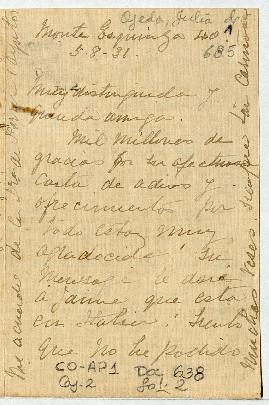 Ojeda, Julia de
1
685
Monte Esquinza 40.
5-8-31.
Muy distinguida y
querida amiga:
Mil millones de
gracias por su afectuosa
carta de adios y
ofrecimientos por
todo estoy muy
agradecida! Su
mensaje le daré
a Jaime que está
en Italia! Siento
que no he podido
CO-AP1
Caj. 2
Doc 638
Fol: 2
Me acuerdo de la
muchas veces siempre tan cariñosa